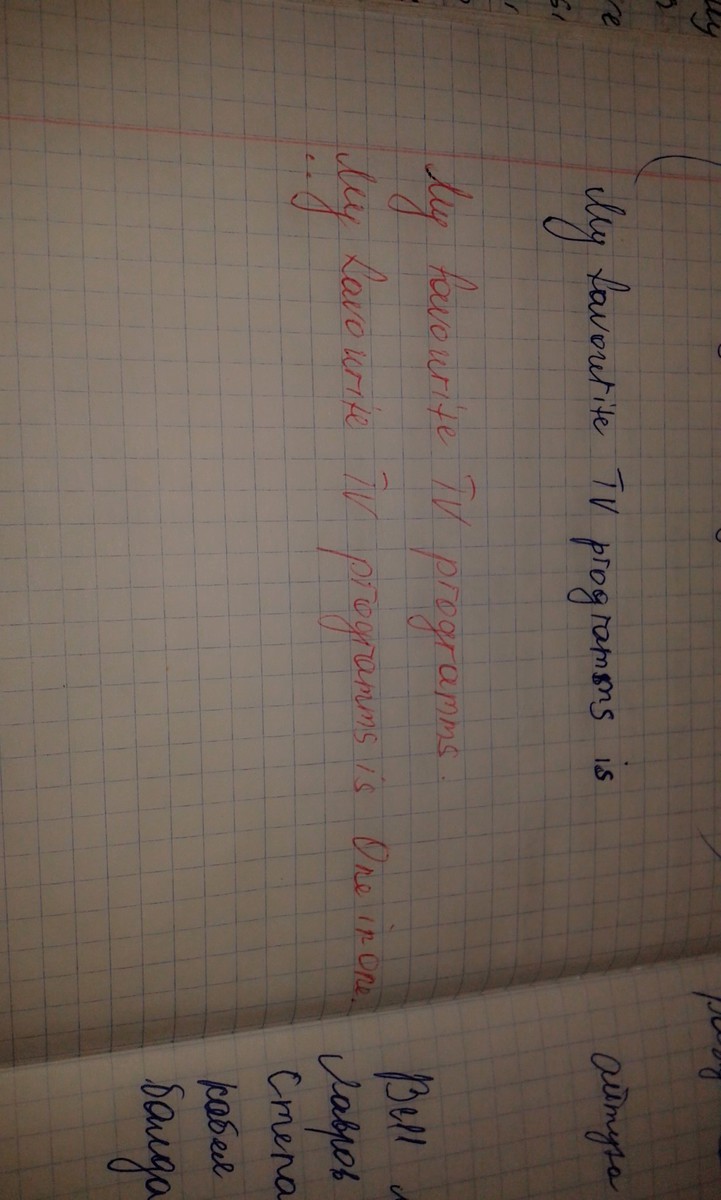 My favourite TV programms is
My favourite TV programms.
My favourite TV programms is One in one.
...
Лавров
Степа
кабел
балда